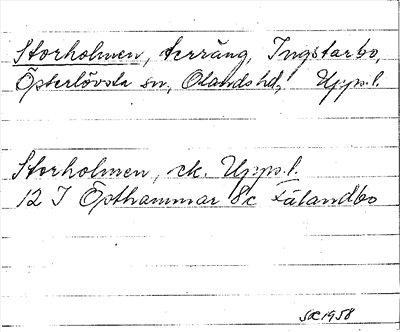 Storholmen, terräng, Ingstarbo,
Österlövsta sn, Olands hd, Upps.l.
Storholmen, ek. Upps.l.
12 I Östhammar 8c Fälandbo
1958